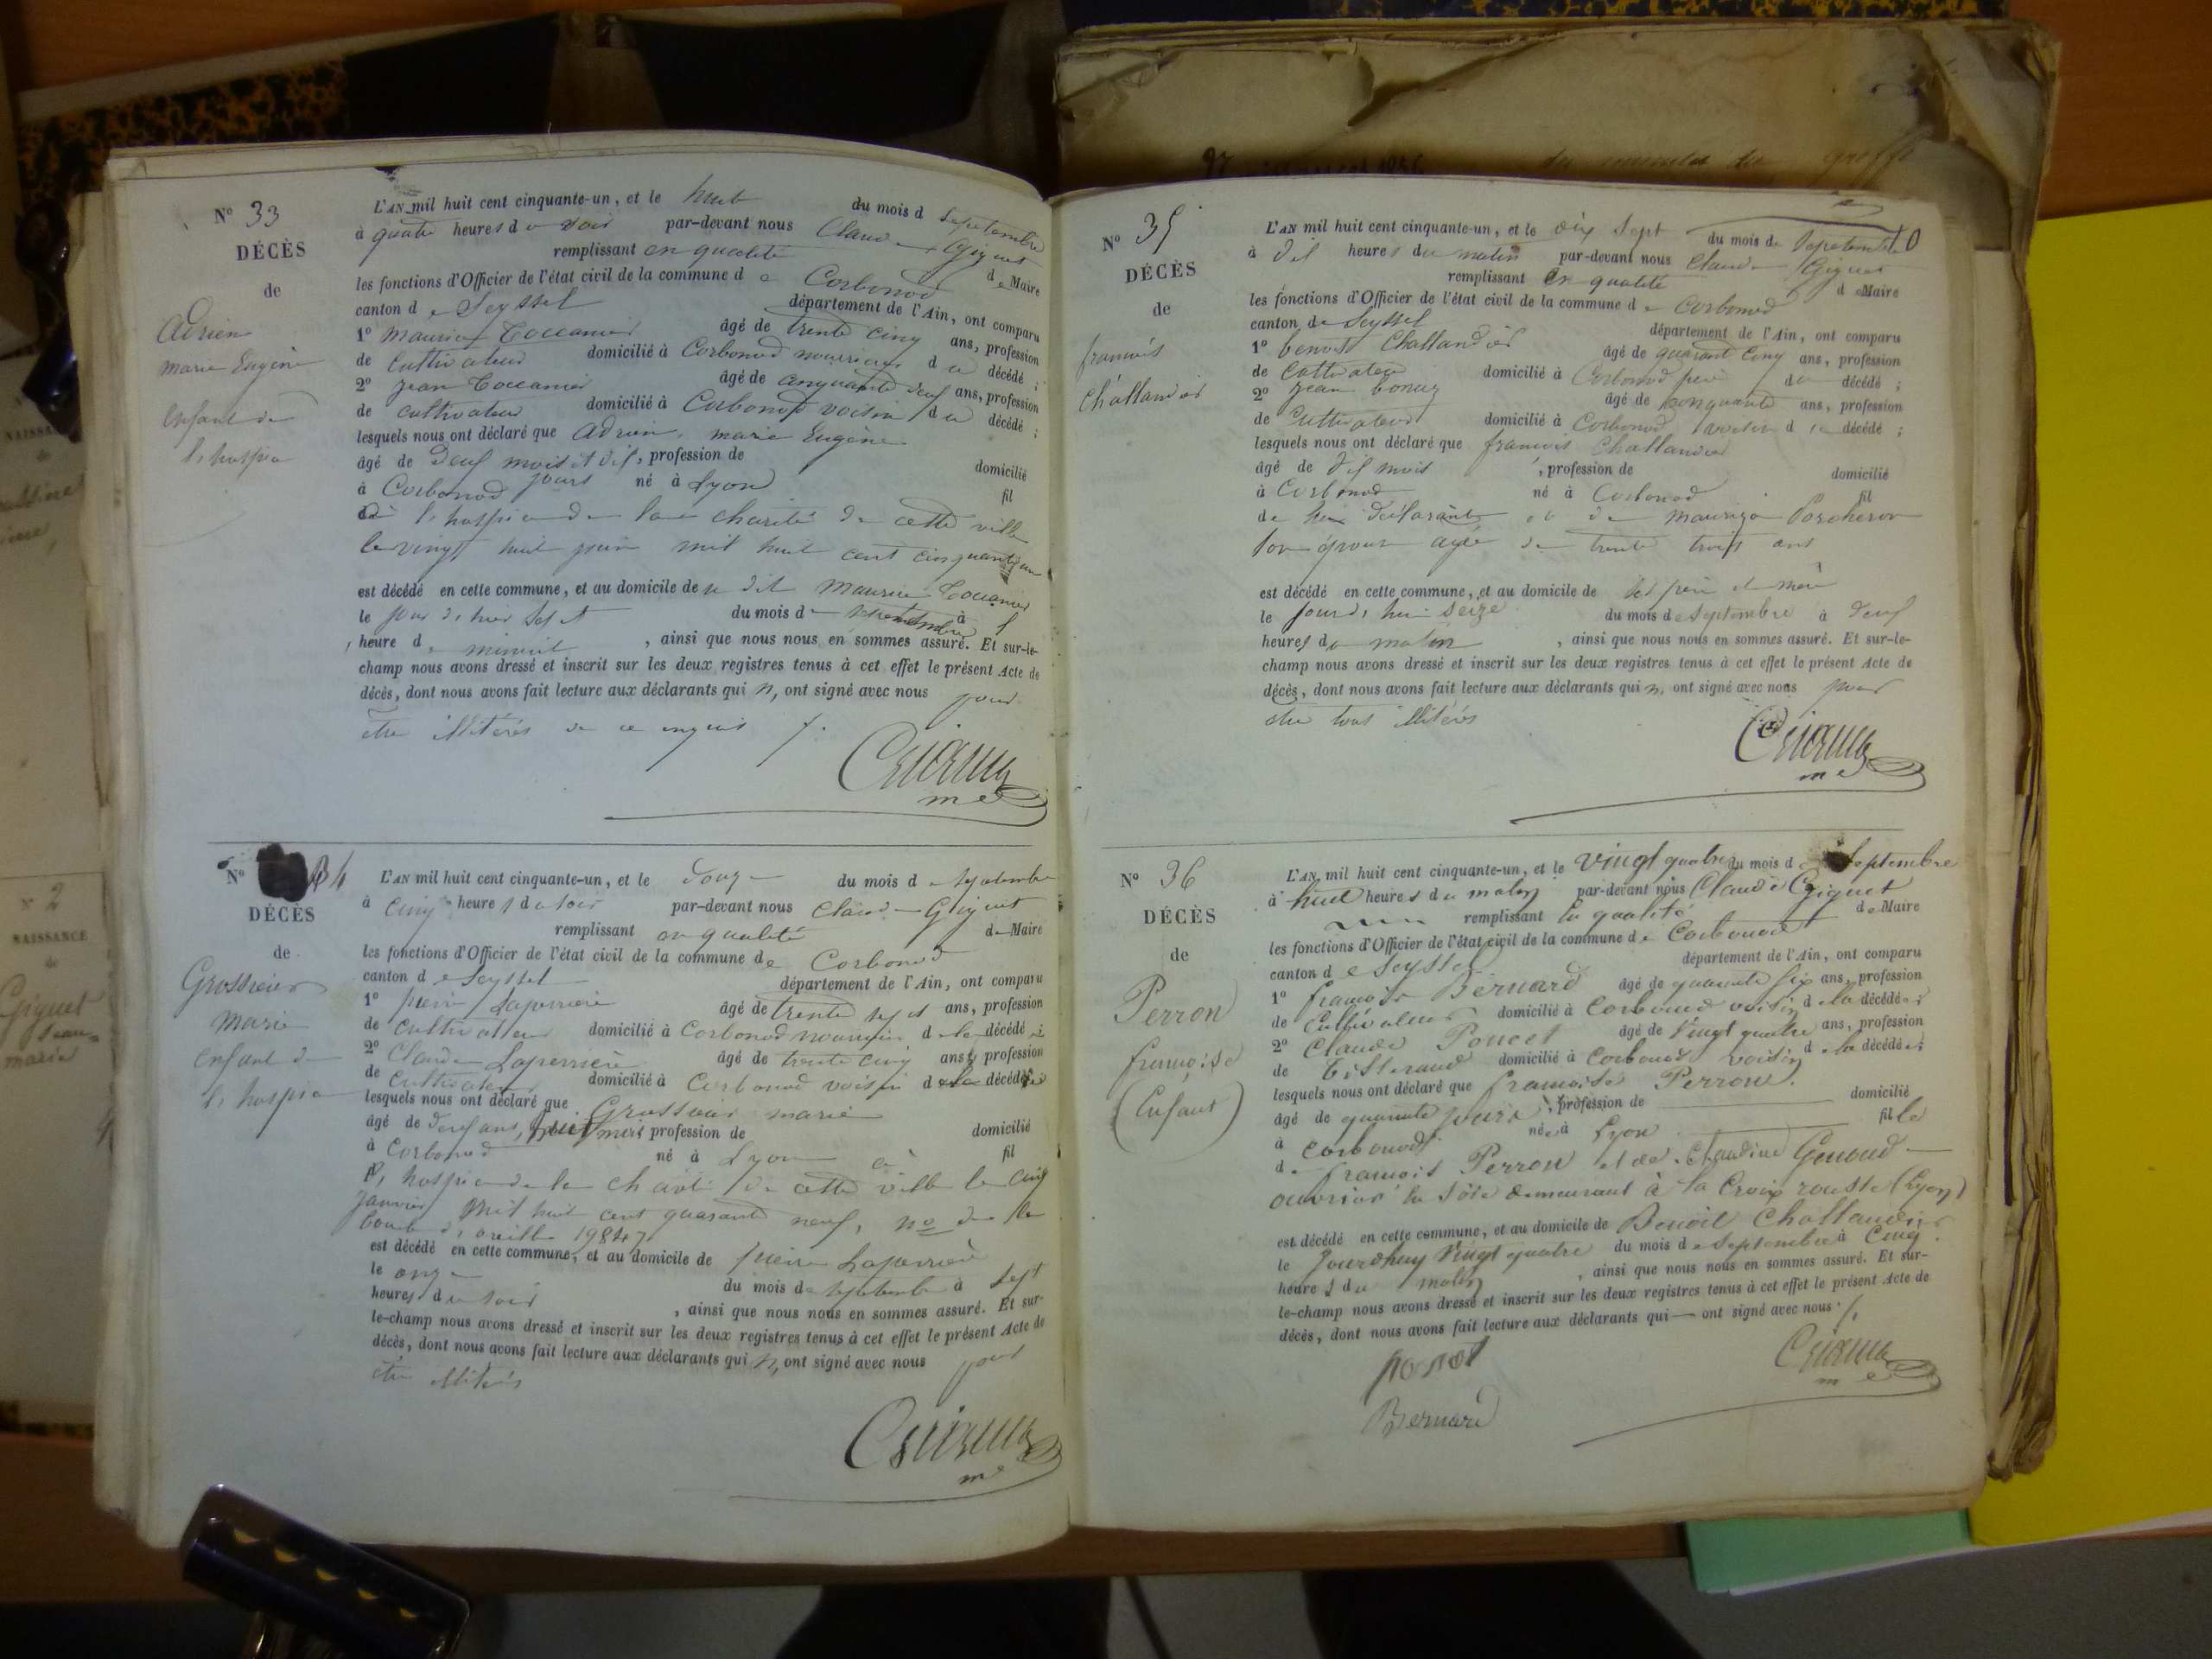 N° 33
DÉCÈS
de
Adrien
marie Eugène
Enfant de
l'hospice
L'AN mil huit cent cinquante-un, et le huit du mois d septembre
à quatre heures du soir par-devant nous Claude Giguet
remplissant en qualité de Maire
les fonctions d'Officier de l'état civil de la commune de Corbonod
canton de Seyssel département de l'Ain, ont comparu
1° maurice Toccanier âgé de trente cinq ans, profession
de cultivateur domicilié à Corbonod nourricier du décédé ;
2° jean Toccanier âgé de cinquante neuf ans, profession
de cultivateur domicilié à Corbonod voisin du décédé ;
lesquels nous ont déclaré que Adrien, marie Eugène
âgé de deux mois et dix jours, profession de domicilié
à Corbonod né à Lyon fil
à l'hospice de la charité de cette ville
le vingt huit juin mil huit cent cinquante un
est décédé en cette commune, et au domicile de dit Maurice Toccanier
le jour d'hier sept du mois de septembre à
heure de minuit, ainsi que nous nous en sommes assuré. Et sur-le-
champ nous avons dressé et inscrit sur les deux registres tenus à cet effet le présent Acte de
décès, dont nous avons fait lecture aux déclarants qui n'ont signé avec nous pour
être illitérés de ce enquis
Giguet
me
N° 34
DÉCÈS
de
Grossieier
Marie
enfant de
l'hospice
L'AN mil huit cent cinquante-un, et le douze du mois de septembre
à cinq heures du soir par-devant nous Claude Giguet
remplissant en qualité de Maire
les fonctions d'Officier de l'état civil de la commune de Corbonod
canton de Seyssel département de l'Ain, ont comparu
1° pierre Laperrière âgé de trente sept ans, profession
de cultivateur domicilié à Corbonod nourricier de la décédé ;
2° Claude Laperrière âgé de trente cinq ans, profession
de cultivateur domicilié à Corbonod voisin de la décédée
lesquels nous ont déclaré que Grossieier marie
âgé de deux ans, huit mois profession de domicilié
à Corbonod né à Lyon à fil
l'hospice de la charité de cette ville le cinq
janvier mil huit cent quarante neuf, n° de la
boucle d'oreille 19847
est décédé en cette commune, et au domicile de pierre Laperrière
le onze du mois de septembre à sept
heures du soir, ainsi que nous nous en sommes assuré. Et sur-
le-champ nous avons dressé et inscrit sur les deux registres tenus à cet effet le présent Acte de
décès, dont nous avons fait lecture aux déclarants qui n'ont signé avec nous pour
être illitérés
Giguet
me
N° 35
DÉCÈS
de
francois
Challandier
L'AN mil huit cent cinquante-un, et le dix sept du mois de septembre
à dix heures du matin par-devant nous Claude Giguet
remplissant en qualité de Maire
les fonctions d'Officier de l'état civil de la commune de Corbonod
canton de Seyssel département de l'Ain, ont comparu
1° benoit Challandier âgé de quarante cinq ans, profession
de Cultivateur domicilié à Corbonod père du décédé ;
2° jean âgé de cinquante ans, profession
de Cultivateur domicilié à Corbonod voisin du décédé ;
lesquels nous ont déclaré que francois Challandier
âgé de dix mois, profession de domicilié
à Corbonod né à Corbonod fil
de déclarant et de Porcheron
son épouse agée de trente trois ans
est décédé en cette commune, et au domicile de ses père et mère
le jour d'hier seize du mois de septembre à deux
heures du matin, ainsi que nous nous en sommes assuré. Et sur-le-
champ nous avons dressé et inscrit sur les deux registres tenus à cet effet le présent Acte de
décès, dont nous avons fait lecture aux déclarants qui n'ont signé avec nous pour
être tous illitérés
Giguet
me
N° 36
DÉCÈS
de
Perron
françoise
(Enfant)
L'AN mil huit cent cinquante-un, et le vingt quatre du mois de Septembre
à huit heures du matin par-devant nous Claude Giguet
remplissant la qualité de Maire
les fonctions d'Officier de l'état civil de la commune de Corbonod
canton de Seyssel département de l'Ain, ont comparu
1° françois Bernard âgé de quarante six ans, profession
de Cultivateur domicilié à Corbonod voisin de la décédée
2° Claude Poncet âgé de Vingt quatre ans, profession
de Tisserand domicilié à Corbonod voisin de la décédée ;
lesquels nous ont déclaré que françoise Perron.
âgé de quarante jours, profession de domicilié
à Corbonod née à Lyon fille
de françois Perron et de Claudine Genoud
ouvrier en soie demeurant à la Croix rousse (Lyon)
est décédé en cette commune, et au domicile de Benoit Challandier
le Jourdhuy Vingt quatre du mois de Septembre à Cinq
heures du matin, ainsi que nous nous en sommes assuré. Et sur-
le-champ nous avons dressé et inscrit sur les deux registres tenus à cet effet le présent Acte de
décès, dont nous avons fait lecture aux déclarants qui — ont signé avec nous
Poncet
Bernard
Giguet
me
N° 2
NAISSANCE
de
Giguet
Jean
marie